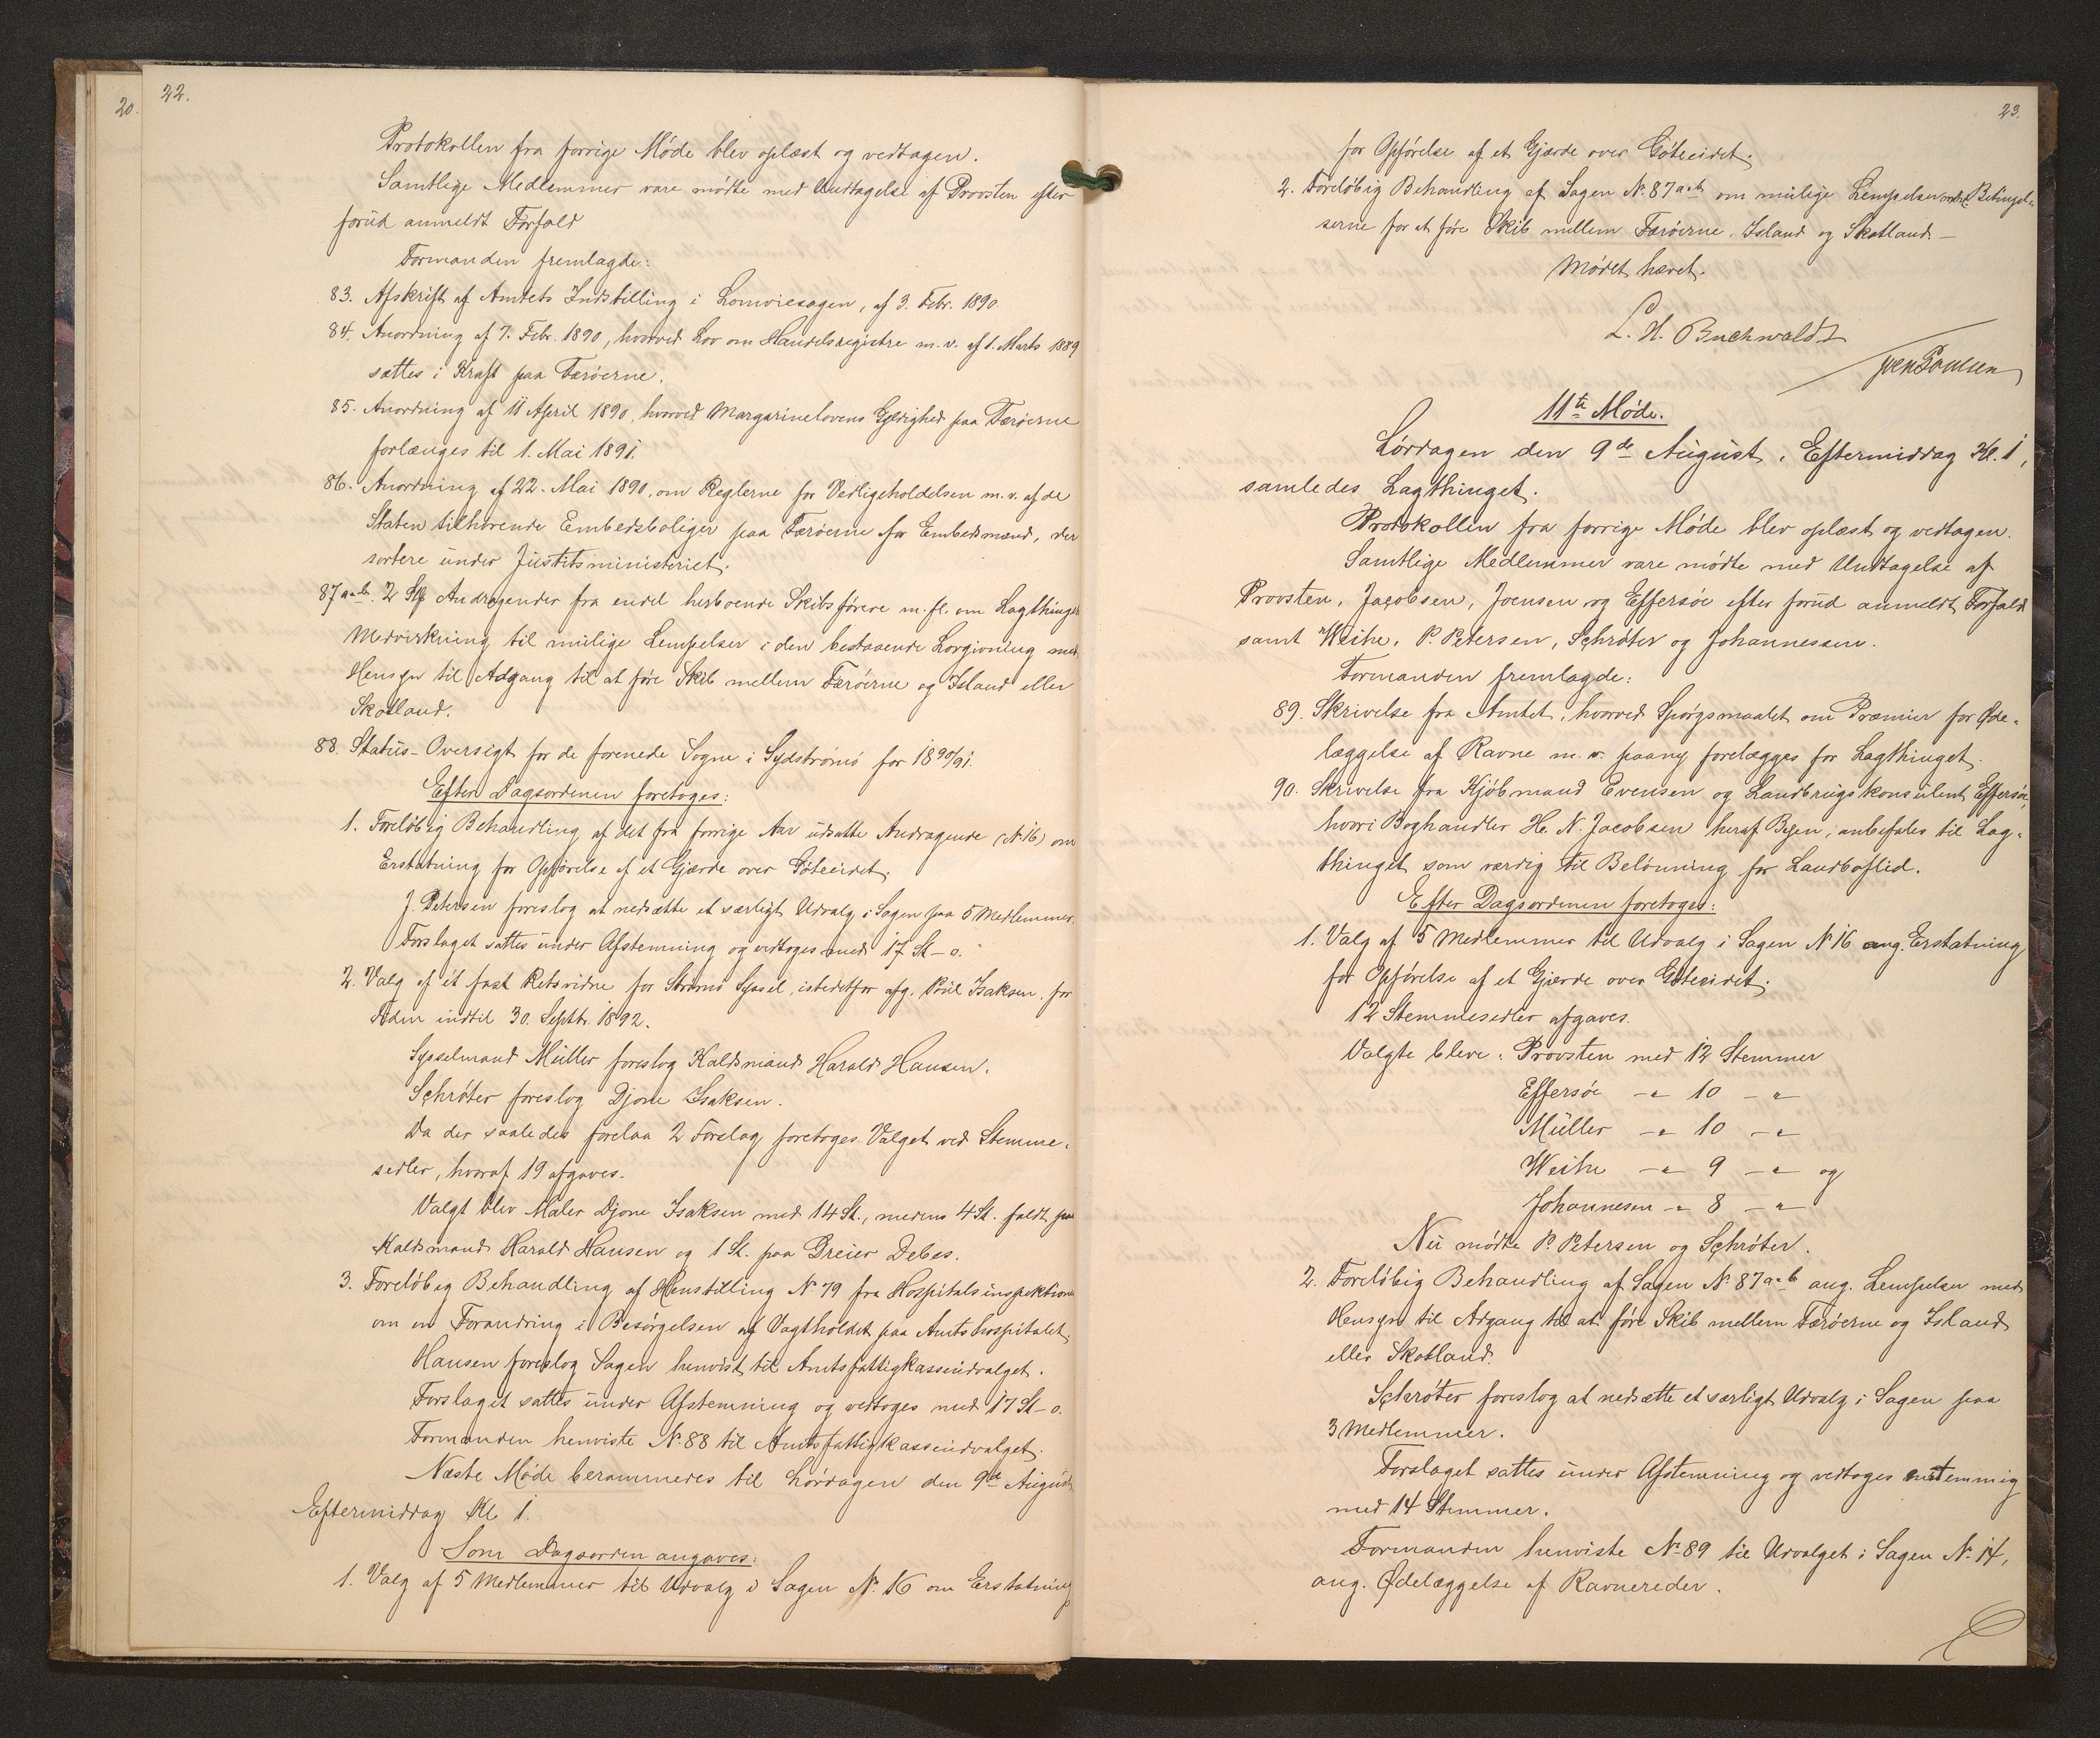 20.
22.
Protokollen fra forrige Møde blev oplæst og vedtagen.
Samtlige Medlemmer vare mødte med Undtagelse af Provsten efter
forud anmeldt Forfald
Formanden fremlagde:
83. Afskrift af Amtets Indstilling i Lomviesagen, af 3. Febr. 1890.
84. Anordning af 7. Febr. 1890, hvorved Lov om Handelsregistre m. v. af 1. Marts 1889
sættes i Kraft paa Færöerne.
85. Anordning af 11 April 1890, hvorved Margarinelovens Gyldighed paa Færöerne
forlænges til 1. Mai 1891.
86. Anordning af 22. Mai 1890, om Reglerne for Vedligeholdelsen m. v. af de
Staten tilhørende Embedsboliger paa Færöerne for Embedsmænd, der
sortere under Justitsministeriet.
87 a-b. 2 Andragender fra endel herboende Skibsførere m. fl. om Lagthingets
Medvirkning til mulige Lempelser i den bestaaende Lovgivning med
Hensyn til Adgang til at føre Skib mellem Færöerne og Island eller
Skotland.
88. Status-Oversigt for de forenede Sogne i Sydströmö for 1890/91.
Efter Dagsordenen foretoges:
1. Foreløbig Behandling af det fra forrige Aar udsatte Andragende (N. 16) om
Erstatning for Opførelse af et Gjærde over Göteeidet.
J. Petersen foreslog at nedsætte et særligt Udvalg i Sagen paa 5 Medlemmer.
Forslaget sattes under Afstemning og vedtoges med 17 St - 0.
2. Valg af et fast Retsvidne for Strömö Syssel, istedetfor afg. Poul Isaksen, for
Tiden indtil 30. Septbr. 1892.
Sysselmand Müller foreslog Kaldsmand Harald Hansen.
Schrøter foreslog Djone Isaksen.
Da der saaledes forelaa 2 Forslag foretoges Valget ved Stemme-
sedler, hvoraf 19 afgaves.
Valgt blev Maler Djone Isaksen med 14 St., medens 4 St. faldt paa
Kaldsmand Harald Hansen og 1 St. paa Greier Debes.
3. Foreløbig Behandling af Henstilling N. 79 fra Hospitalsinspektionen
om en Forandring i Besørgelsen af Vagtholdet paa Amtshospitalet.
Hansen foreslog Sagen henvist til Amtsfattigkasseudvalget.
Forslaget sattes under Afstemning og vedtoges med 17 St - 0.
Formanden henviste N. 88 til Amtsfattigkasseudvalget.
Næste Møde berammedes til Lørdagen den 9de August
Eftermiddag Kl. 1.
Som Dagsorden angaves:
1. Valg af 5 Medlemmer til Udvalg i Sagen N. 16 om Erstatning
23.
for Opførelse af et Gjærde over Göteeidet.
2. Foreløbig Behandling af Sagen N. 87 a-b om mulige Lempelser Betingel-
serne for at føre Skib mellem Færöerne, Island og Skotland. —
Mødet hævet.
L. H. Buchwaldt
Joen Poulsen
11te Møde.
Lørdagen den 9de August, Eftermiddag Kl. 1,
samledes Lagthinget.
Protokollen fra forrige Møde blev oplæst og vedtagen.
Samtlige Medlemmer vare mødte med Undtagelse af
Provsten, Jacobsen, Joensen og Effersöe efter forud anmeldt Forfald
samt Weihe, P. Petersen, Schrøter og Johannessen.
Formanden fremlagde:
89. Skrivelse fra Amtet, hvorved Spørgsmaalet om Præmier for Øde-
læggelse af Ravne m. v. paany forelægges for Lagthinget.
90. Skrivelse fra Kjøbmand Evensen og Landbrugskonsulent Effersöe,
hvori Boghandler H. N. Jacobsen heraf Byen, anbefales til Lag-
thinget som værdig til Belønning for Landboflid.
Efter Dagsordenen foretoges:
1. Valg af 5 Medlemmer til Udvalg i Sagen N. 16 ang. Erstatning
for Opførelse af et Gjærde over Göteeidet.
12 Stemmesedler afgaves.
Valgte bleve: Provsten med 12 Stemmer
Effersöe -"- 10 -"-
Müller -"- 10 -"-
Weihe -"- 9 -"- og
Johannesen -"- 8 -"-
Nu mødte P. Petersen og Schrøter.
2. Foreløbig Behandling af Sagen N. 87 a-b ang. Lempelser med
Hensyn til Adgang til at føre Skib mellem Færöerne og Island
eller Skotland.
Schrøter foreslog at nedsætte et særligt Udvalg i Sagen paa
3 Medlemmer.
Forslaget sattes under Afstemning og vedtoges enstemmig
med 14 Stemmer.
Formanden henviste N. 89 til Udvalget i Sagen N. 14,
ang. Ødelæggelse af Ravnereder.